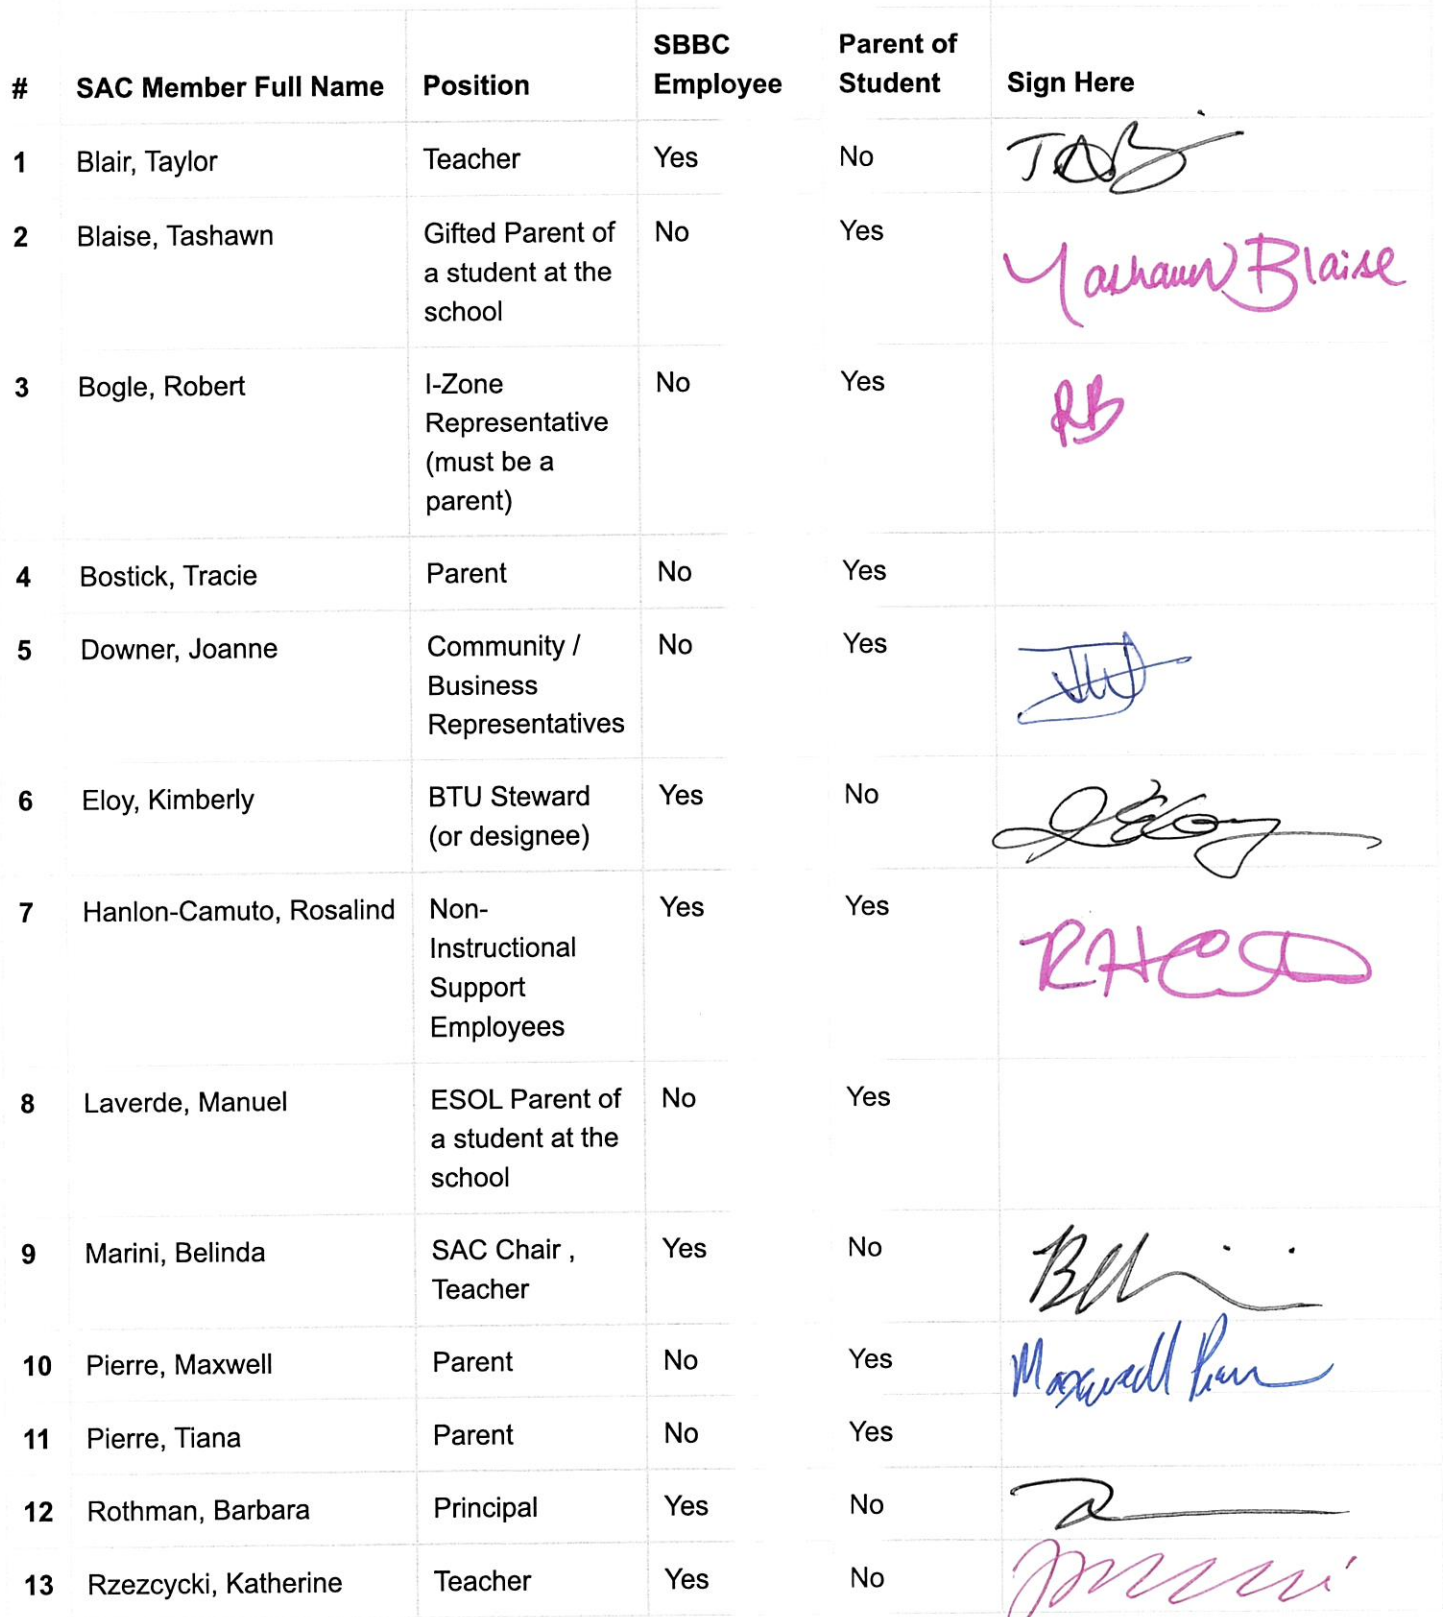 # SAC Member Full Name Position SBBC Employee Parent of Student Sign Here
1 Blair, Taylor Teacher Yes No TAB
2 Blaise, Tashawn Gifted Parent of No Yes Tashawn Blaise
a student at the
school
3 Bogle, Robert I-Zone No Yes RB
Representative
(must be a
parent)
4 Bostick, Tracie Parent No Yes
5 Downer, Joanne Community / No Yes
Business
Representatives
6 Eloy, Kimberly BTU Steward Yes No
(or designee)
7 Hanlon-Camuto, Rosalind Non- Yes Yes
Instructional
Support
Employees
8 Laverde, Manuel ESOL Parent of No Yes
a student at the
school
9 Marini, Belinda SAC Chair , Yes No
Teacher
10 Pierre, Maxwell Parent No Yes Maxwell Pierre
11 Pierre, Tiana Parent No Yes
12 Rothman, Barbara Principal Yes No
13 Rzezcycki, Katherine Teacher Yes No